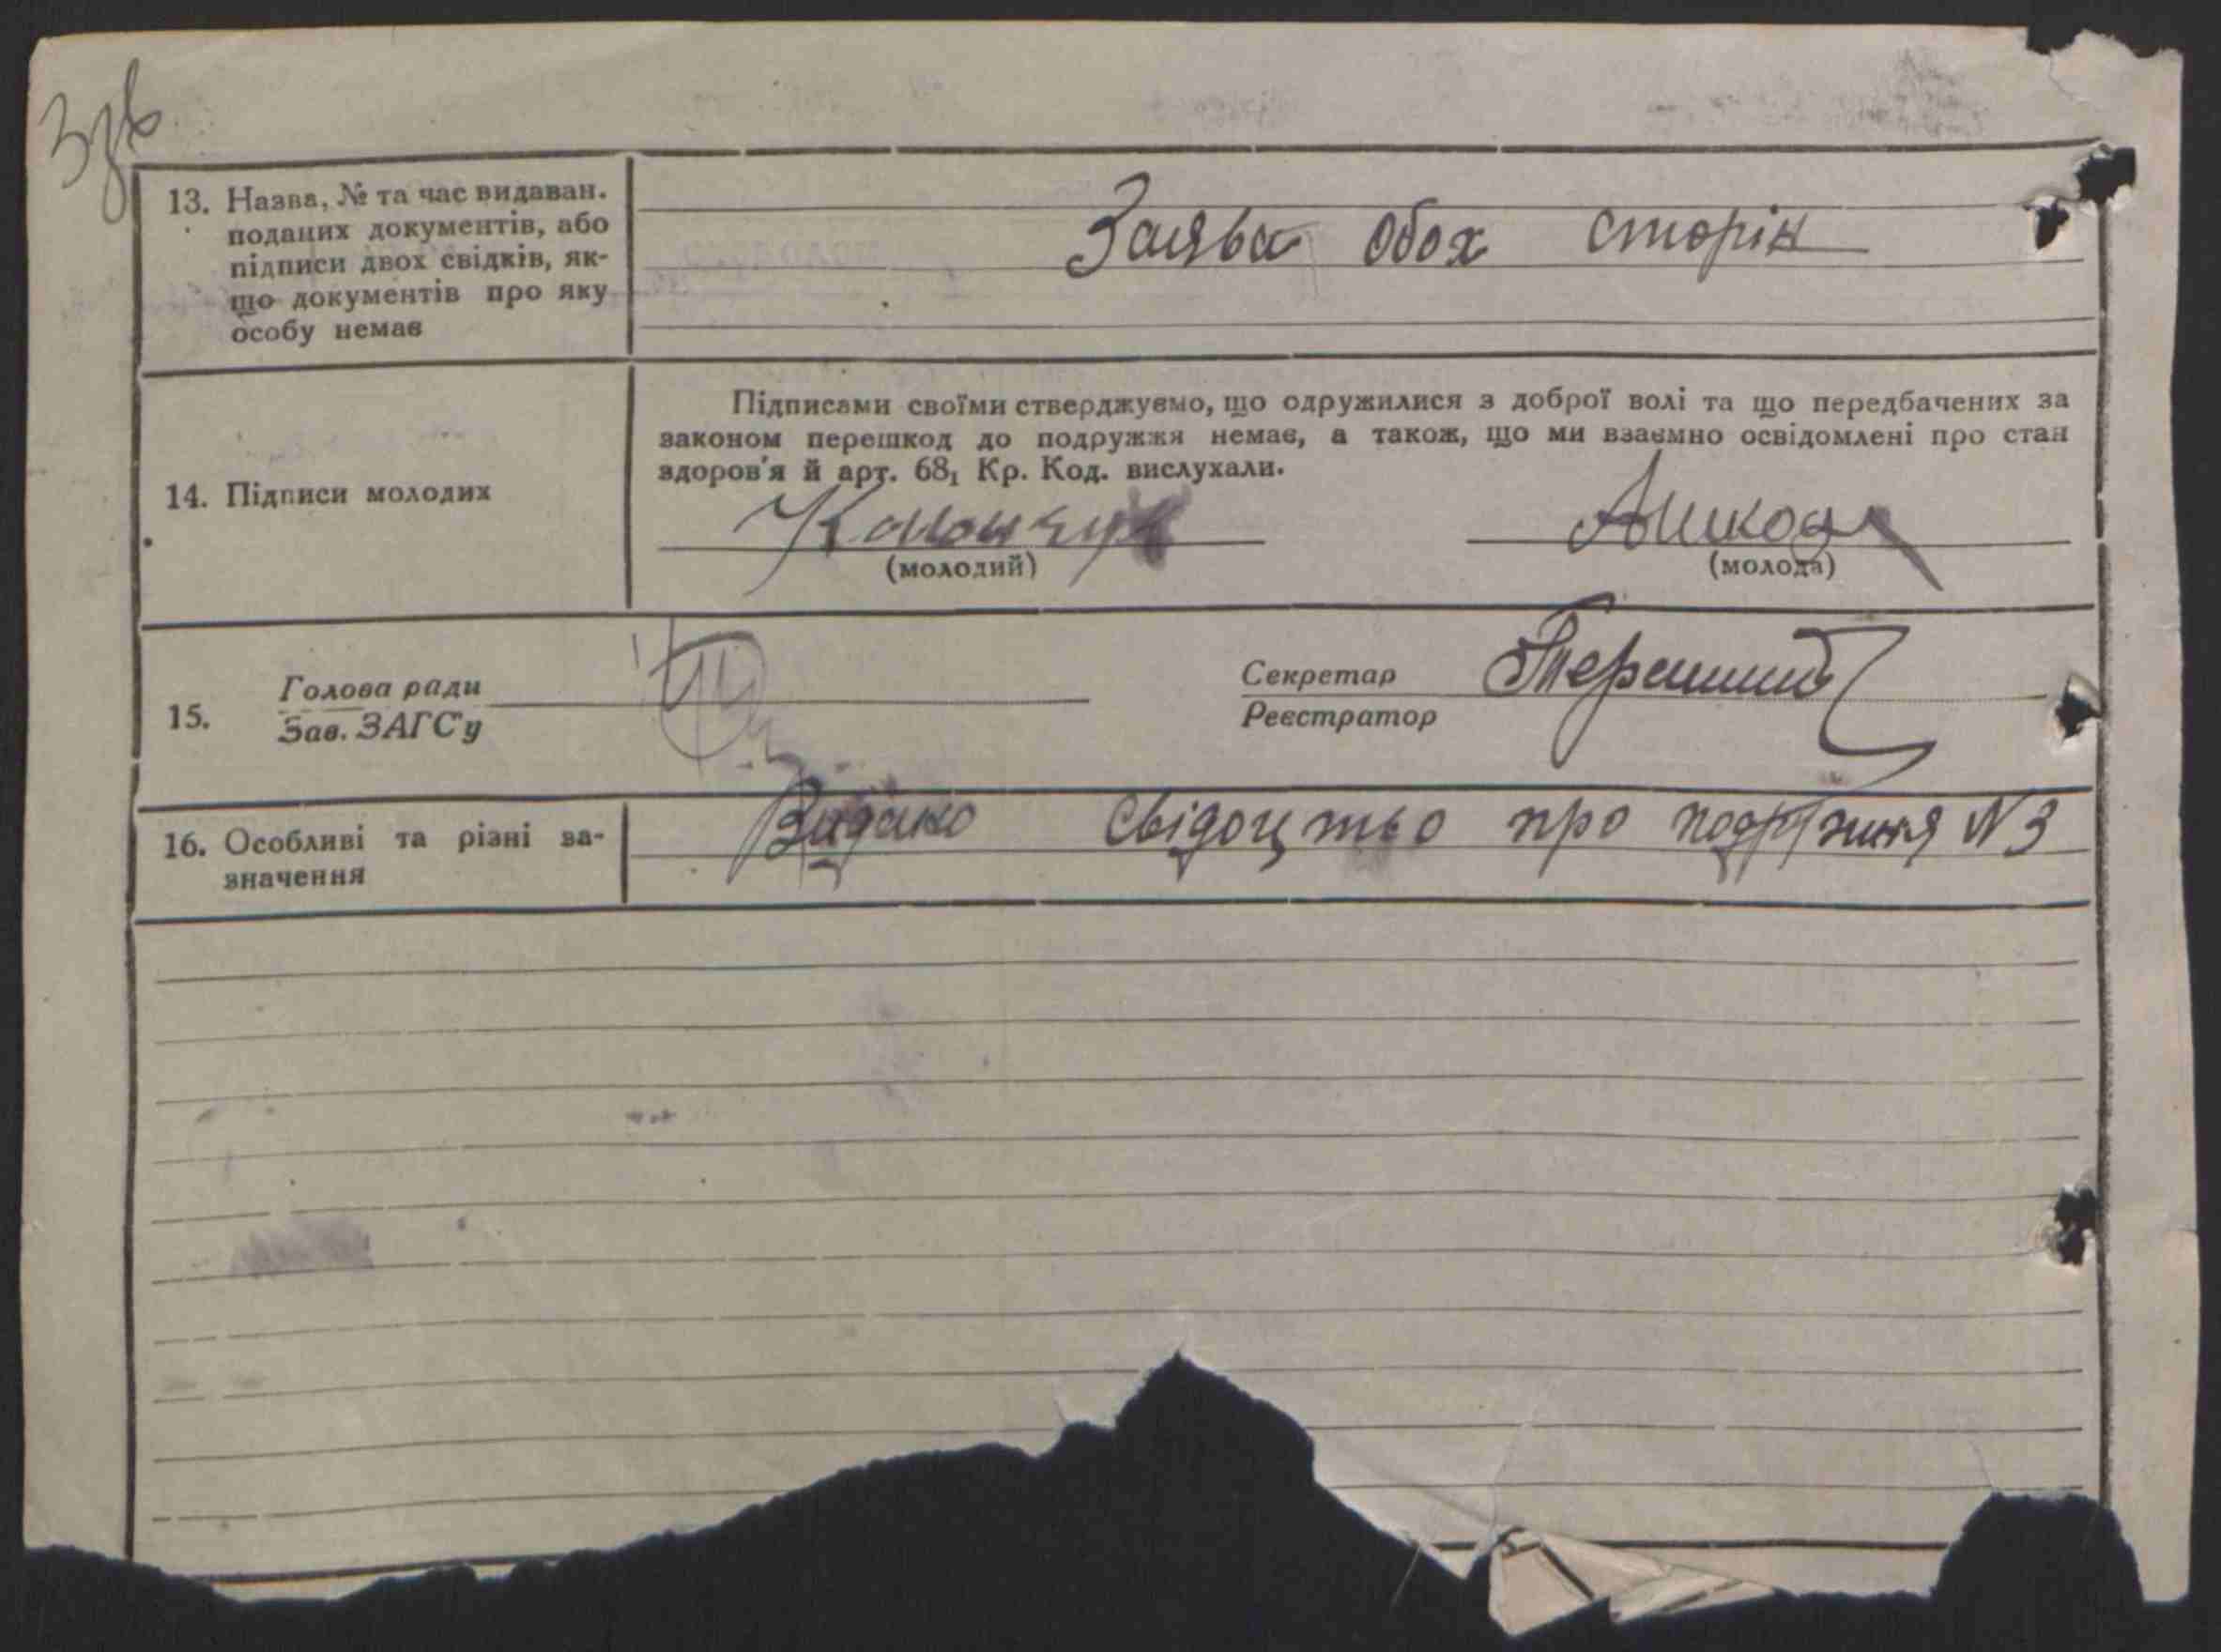 13. Назва, № та час видаван.
поданих документів, або
підписи двох свідків, як-
що документів про яку
особу немає
Заява обох сторін
14. Підписи молодих
Підписами своїми стверджуємо, що одружилися з доброї волі та що передбачених за
законом перешкод до подружжя немає, а також, що ми взаємно освідомлені про стан
здоров'я й арт. 68₁ Кр. Код. вислухали.
(молодий)
(молода)
15.
Голова ради
Зав. ЗАГС'у
Секретар
Реєстратор
16. Особливі та різні за-
значення
Видано свідоцтво про подружжя N 3